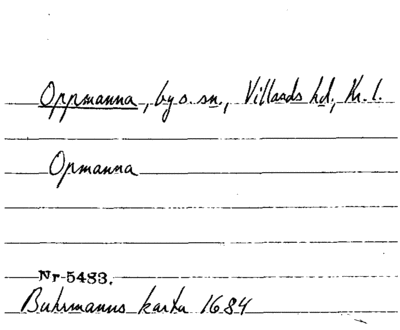 Oppmanna, by o. sn., Villands hd, Kr. l.
Opmanna
Nr 5483.
Buhrmanns karta 1684